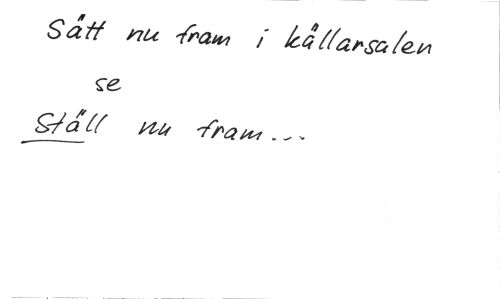 Sätt nu fram i källarsalen
se
Ställ nu fram...